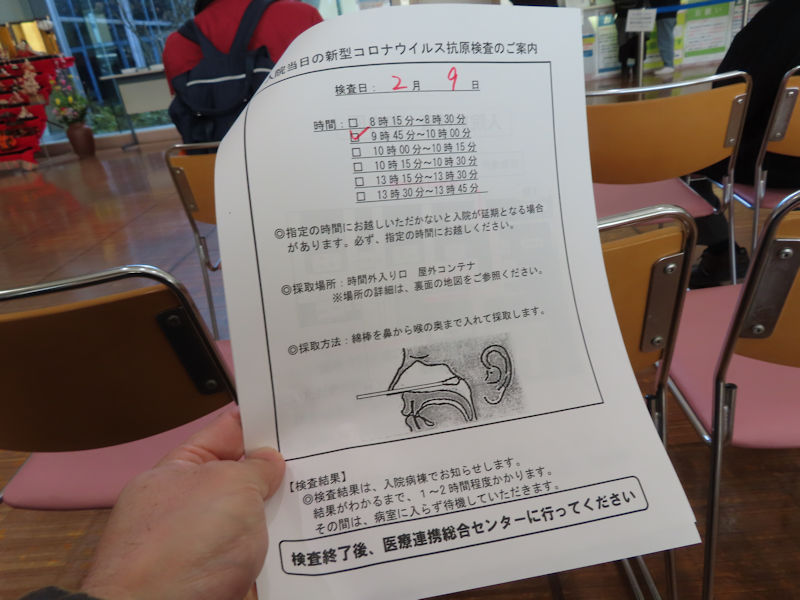 入院当日の新型コロナウイルス抗原検査のご案内
検査日： 2 月 9 日
時間：□ 8時15分～8時30分
☑ 9時45分～10時00分
□ 10時00分～10時15分
□ 10時15分～10時30分
□ 13時15分～13時30分
□ 13時30分～13時45分
◎指定の時間にお越しいただかないと入院が延期となる場合
があります。必ず、指定の時間にお越しください。
◎採取場所：時間外入り口 屋外コンテナ
※場所の詳細は、裏面の地図をご参照ください。
◎採取方法：綿棒を鼻から喉の奥まで入れて採取します。
【検査結果】
◎検査結果は、入院病棟でお知らせします。
結果がわかるまで、１～２時間程度かかります。
その間は、病室に入らず待機していただきます。
検査終了後、医療連携総合センターに行ってください